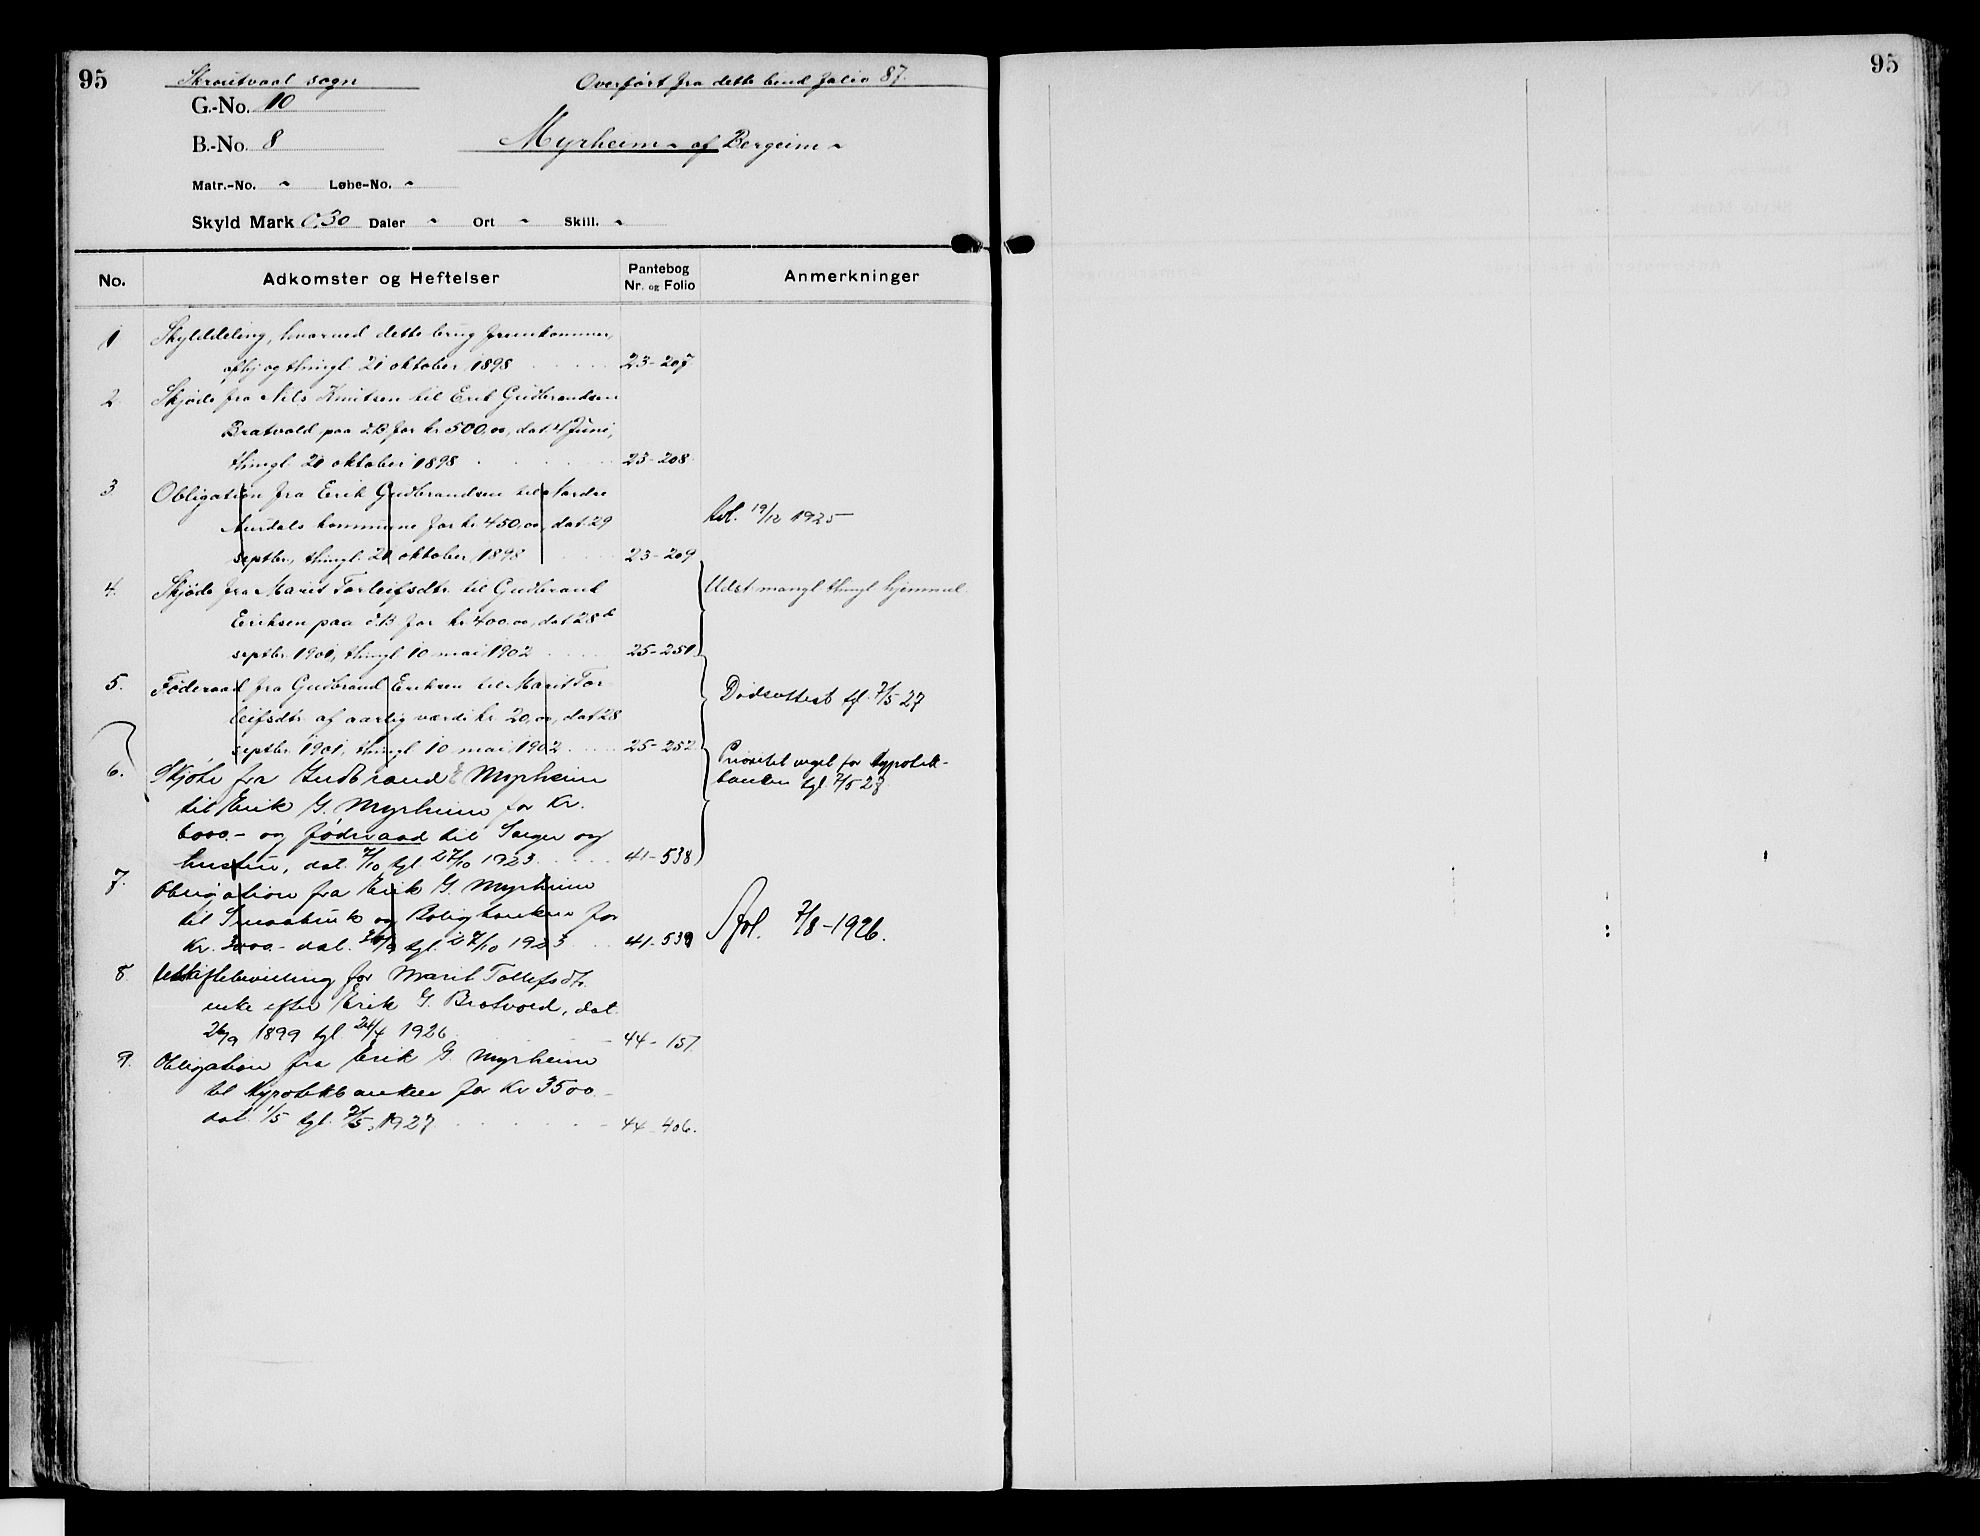 95
Skroutvaal sogn
Overført fra dette bind folio 87.
G.-No. 10
B.-No. 8
Myrheim af Bergeim
Matr.-No. Løbe-No.
Skyld Mark 0,30 Daler Ort Skill.
No. Adkomster og Heftelser Pantebog Nr. og Folio Anmerkninger
1 Skylddeling, hvorved dette brug fremkommer,
afhj og thingl. 21 oktober 1898 23-207
2. Skjøde fra Nils Knutsen til Erik Gudbrandsen
Bratvold paa d.B for kr 500,00, dat. 4 Juni,
thingl. 21 oktober 1898 23-208
3 Obligation fra Erik Gudbrandsen til Nordre
Aurdals kommune for kr. 450,00, dat. 29
septbr, thingl. 21 oktober 1898 23-209
Avl. 19/12 1925
4. Skjøde fra Marit Torleifsdtr til Gudbrand
Eriksen paa d.B for kr 400.00, dat 28de
septbr. 1901, thingl 10 mai 1902 25-251
Udst. mangl. thingl hjemmel.
5. Føderaad fra Gudbrand Eriksen til Marit Tor
leifsdtr af aarlig værdi kr. 20,00, dat 28
septbr. 1901, thingl 10 mai 1902 25-252
Dødsattest tgl. 7/5 27
6. Skjøte fra Gudbrand E Myrheim
til Erik G. Myrheim for Kr.
6000.- og føderaad til Sælger og
hustru, dat. 7/10 tgl. 27/10 1923 41-538
Prioritet veget for Hypotek-
banken tgl. 7/5 27
7. Obligation fra Erik G. Myrheim
til Smaabruk og Boligbanken for
Kr. 3000.- dat. tgl. 27/10 1923 41-539
Avl. 7/8-1926.
8. Uskiftebevilling for Marit Tollefsdtr.
enke efter Erik G. Bratvold, dat.
26/9 1899 tgl. 24/4 1926 44-157
9. Obligation fra Erik G. Myrheim
til Hypotekbanken for Kr 3500.-
dat. 1/5 tgl. 7/5 1927 44-406.
95